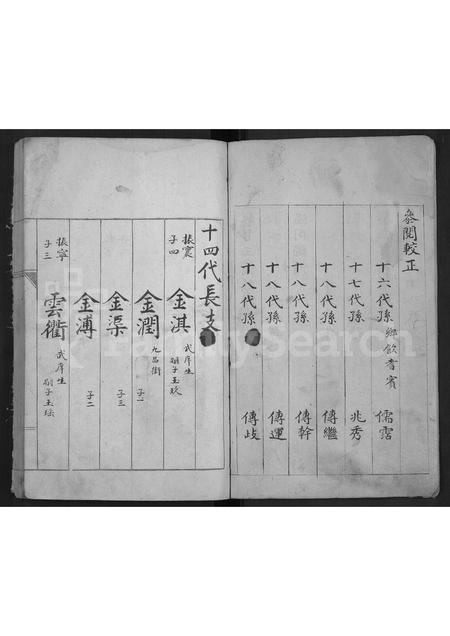 參閱較正
十六代孫 鄉飲耆賓 儒
十七代孫 兆秀
十八代孫 傳繼
十八代孫 傳幹
十八代孫 傳運
十八代孫 傳歧
十四代長支
振寰 子四 金淇 武庠生 嗣子玉
金潤 子一
金渠 子三
金溥 子二
振寧 子三 雲衢 武庠生 嗣子玉
FamilySearch